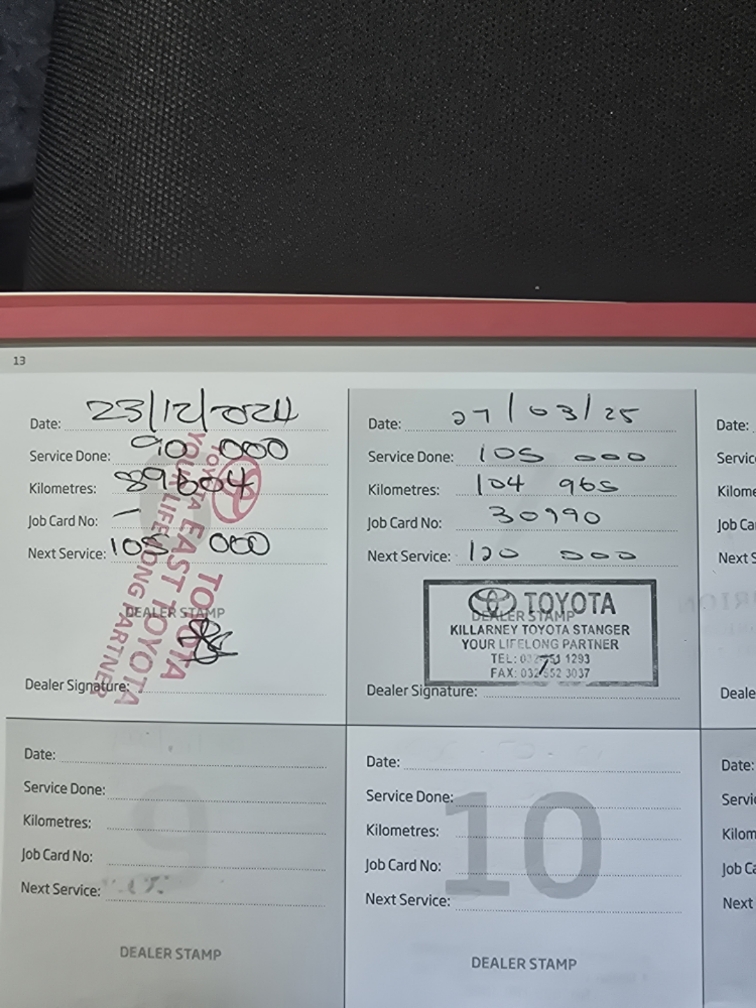 13
Date: 23/12/2024
Service Done: 90 000
Kilometres: 89604
Job Card No: —
Next Service: 105 000
TOYOTA
TOYOTA EAST TOYOTA
YOUR LIFELONG PARTNER
DEALER STAMP
Dealer Signature:
Date: 27/03/25
Service Done: 105 000
Kilometres: 104 965
Job Card No: 30990
Next Service: 120 000
TOYOTA
DEALER STAMP
KILLARNEY TOYOTA STANGER
YOUR LIFELONG PARTNER
TEL: 1293
FAX: 032 552 3037
Dealer Signature:
Date:
Job
Next
9
Date:
Service Done:
Kilometres:
Job Card No:
Next Service:
DEALER STAMP
10
Date:
Service Done:
Kilometres:
Job Card No:
Next Service:
DEALER STAMP
Date:
Next